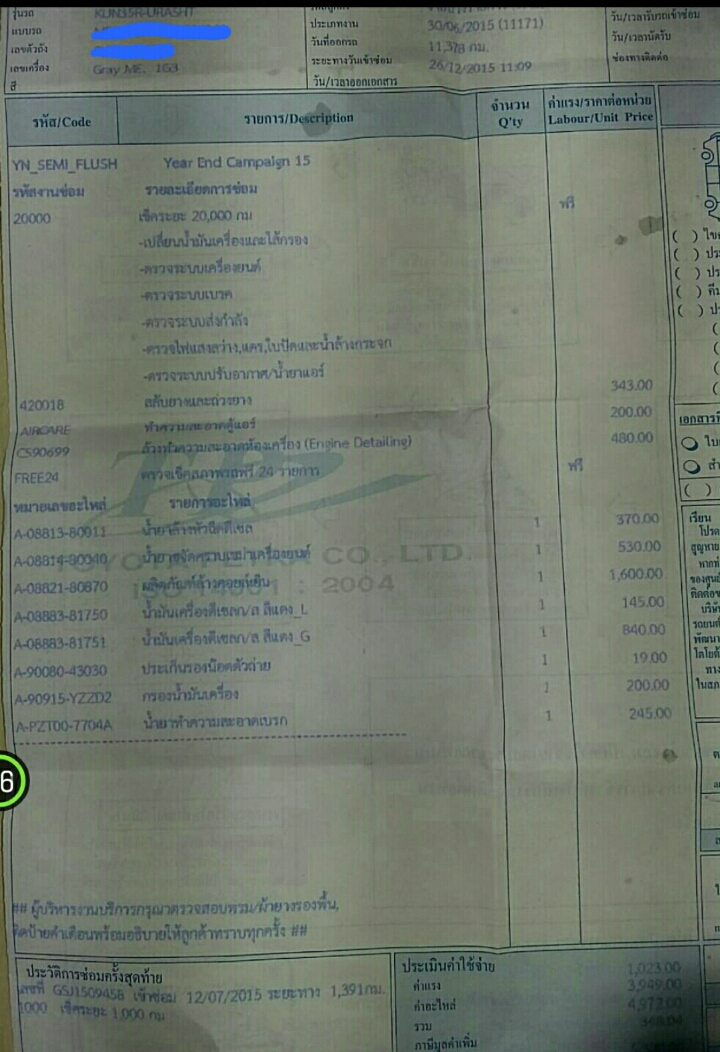 รุ่นรถ KUN35R-URASHT
แบบรถ
เลขตัวถัง
เลขเครื่อง
สี Gray ME, 1G3
ประเภทงาน
วันที่ออกรถ 30/06/2015 (11171)
ระยะทางวันเข้าซ่อม 11,378 กม.
วัน/เวลาออกเอกสาร 26/12/2015 11:09
วัน/เวลารับรถเข้าซ่อม
วัน/เวลานัดรับ
ช่องทางติดต่อ
รหัส/Code รายการ/Description จำนวน Q'ty ค่าแรง/ราคาต่อหน่วย Labour/Unit Price
YN_SEMI_FLUSH Year End Campaign 15
รหัสงานซ่อม รายละเอียดการซ่อม
20000 เช็คระยะ 20,000 กม ฟรี
-เปลี่ยนน้ำมันเครื่องและไส้กรอง
-ตรวจระบบเครื่องยนต์
-ตรวจระบบเบรค
-ตรวจระบบส่งกำลัง
-ตรวจไฟแสงสว่าง,แตร,ใบปัดและน้ำล้างกระจก
-ตรวจระบบปรับอากาศ/น้ำยาแอร์
420018 สลับยางและถ่วงยาง 343.00
AIRCARE ทำความสะอาดตู้แอร์ 200.00
CS90699 ล้างทำความสะอาดห้องเครื่อง (Engine Detailing) 480.00
FREE24 ตรวจเช็คสภาพรถฟรี 24 รายการ ฟรี
หมายเลขอะไหล่ รายการอะไหล่
A-08813-80011 น้ำยาล้างหัวฉีดดีเซล 1 370.00
A-08814-80040 น้ำยาขจัดคราบเขม่าเครื่องยนต์ 1 530.00
CO., LTD.
A-08821-80870 ผลิตภัณฑ์ล้างคอยล์เย็น 1 1,600.00
: 2004
A-08883-81750 น้ำมันเครื่องดีเซลก/ส สีแดง_L 1 145.00
A-08883-81751 น้ำมันเครื่องดีเซลก/ส สีแดง_G 1 840.00
A-90080-43030 ประเก็นรองน๊อตตัวถ่าย 1 19.00
A-90915-YZZD2 กรองน้ำมันเครื่อง 1 200.00
A-PZT00-7704A น้ำยาทำความสะอาดเบรก 1 245.00
6
## ผู้บริหารงานบริการกรุณาตรวจสอบพรม/ผ้ายางรองพื้น,
ติดป้ายคำเตือนพร้อมอธิบายให้ลูกค้าทราบทุกครั้ง ##
ประวัติการซ่อมครั้งสุดท้าย
เลขที่ GSJ1509458 เข้าซ่อม 12/07/2015 ระยะทาง 1,391กม.
1000 เช็คระยะ 1,000 กม
ประเมินค่าใช้จ่าย
ค่าแรง 1,023.00
ค่าอะไหล่ 3,949.00
รวม 4,972.00
ภาษีมูลค่าเพิ่ม
เรียน